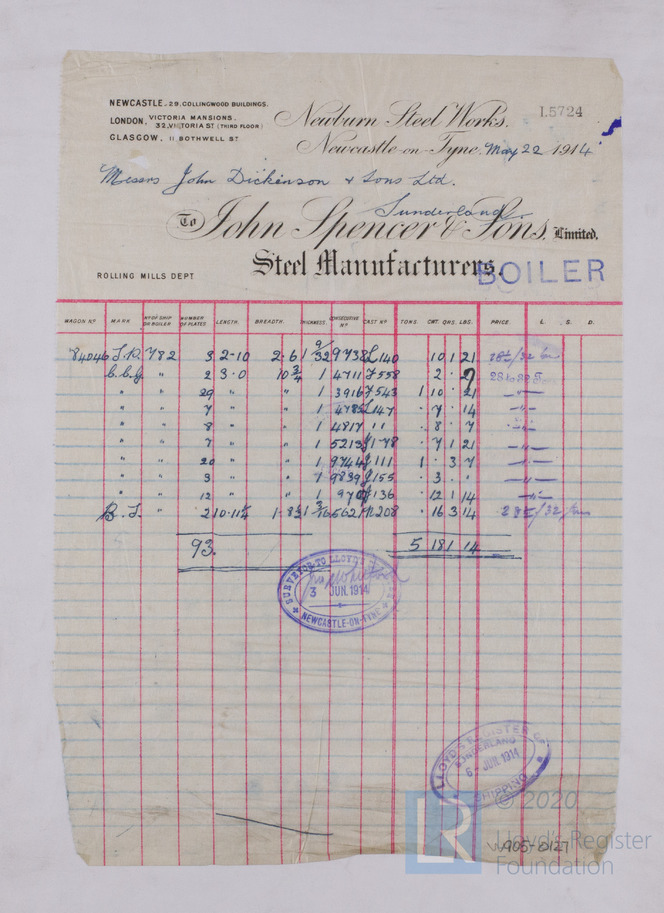 NEWCASTLE. 29, COLLINGWOOD BUILDINGS.
LONDON, VICTORIA MANSIONS, 32, VICTORIA ST (THIRD FLOOR)
GLASGOW, 11 BOTHWELL ST
Newburn Steel Works.
L5724
Newcastle-on-Tyne, May 22 1914
Messrs John Dickinson & Sons Ltd.
Sunderland.
To John Spencer & Sons, Limited,
Steel Manufacturers.
BOILER
ROLLING MILLS DEPT
WAGON No MARK No OF SHIP OR BOILER NUMBER OF PLATES LENGTH. BREADTH. THICKNESS. CONSECUTIVE No CAST No TONS. CWT. QRS. LBS. PRICE. £. S. D.
84046 782 3 2-10 2-6 1 9/32 9738 140 10 1 21
" 2 3-0 10 3/4 1 4711 558 2 .
" " 29 " " 1 3916 543 1 10 . 21 -"-
" " 7 " " 1 147 . 7 . 14 -"-
" " 8 " " 1 4817 11 . 8 . 7 -"-
" " 7 " " 1 5213 178 . 7 1 21 -"-
" " 20 " " 1 9744 111 1 . 3 7 -"-
" " 3 " " 1 9839 155 . 3 . . -"-
" " 12 " " 1 136 . 12 1 14 -"-
" 2 10-11 1/4 208 . 16 3 14
93. 5 18 1 14
SURVEYOR TO LLOYD'S
3 JUN. 1914
NEWCASTLE-ON-TYNE
LLOYD'S REGISTER OF
SUNDERLAND
6 - JUN. 1914
SHIPPING
© 2020
LR
Lloyd's Register
Foundation
W905-0127